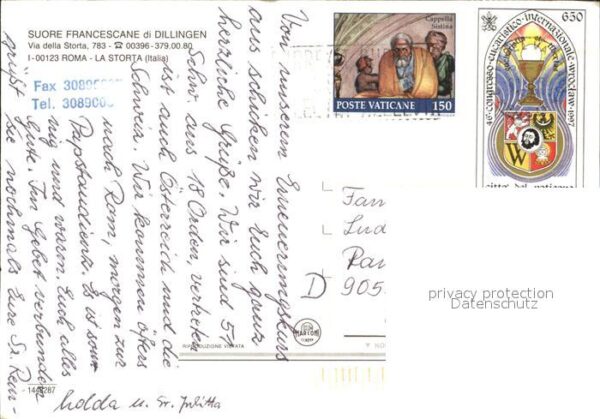 SUORE FRANCESCANE di DILLINGEN
Via della Storta, 783 - ☎ 00396-379.00.80
I-00123 ROMA - LA STORTA (Italia)
Fax 3089
Tel. 308906
Von unserem Erneuerungskurs
aus schicken wir Euch ganz
herzliche Grüße. Wir sind 51
Schw. aus 18 Orden, vertreten
ist auch Österreich und die
Schweiz. Wir kommen öfters
nach Rom, morgen zur
Papstaudienz. Es ist sonnig
und warm. Euch alles
Gute. Im Gebet verbunden
grüßt
sie nochmals Eure Sr. Rein-
holda u. Sr. Julitta
Cappella
Sistina
POSTE VATICANE 150
650
46° congresso eucaristico internazionale wrocław 1997
W
città del vaticano
Fam
Lud
D 905
privacy protection
Datenschutz
RIPRODUZIONE VIETATA